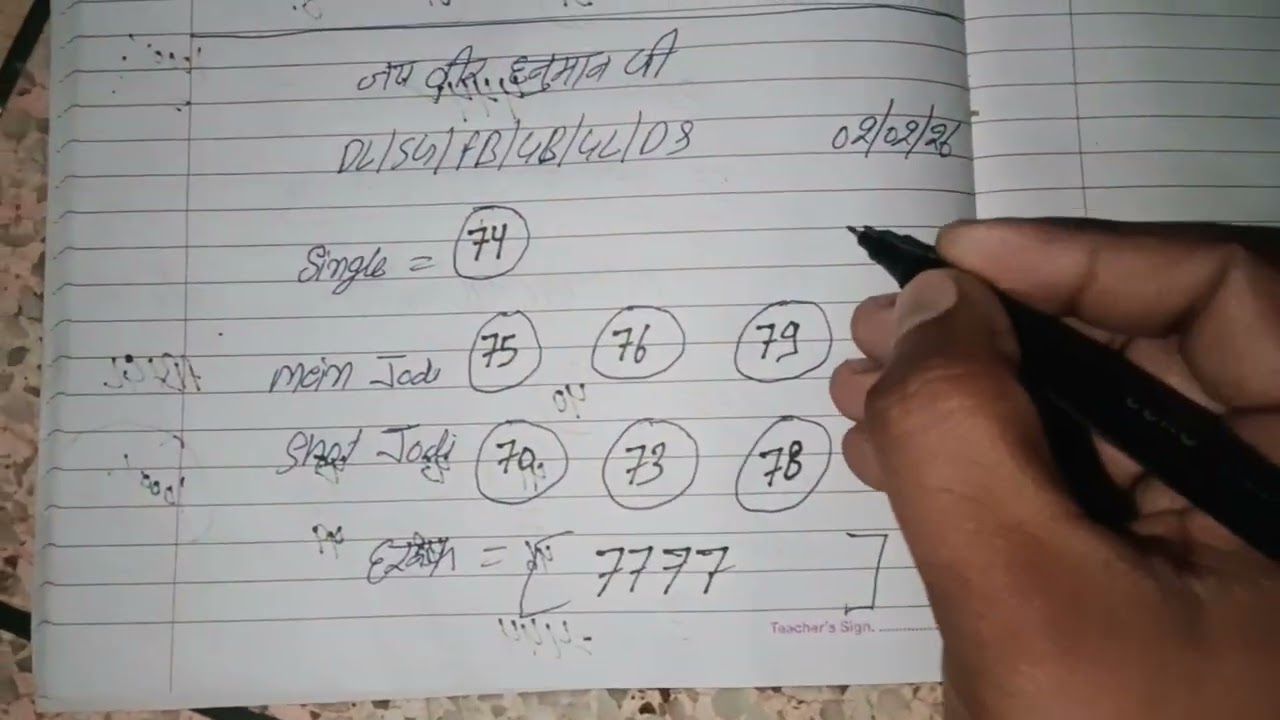 जय वीर हनुमान जी
DL/SG/FB/GB/GL/DS 02/02/26
Single = 74
Main Jodi 75 76 79
Jodi 70 73 78
= [ 7777 ]
Teacher's Sign. ............